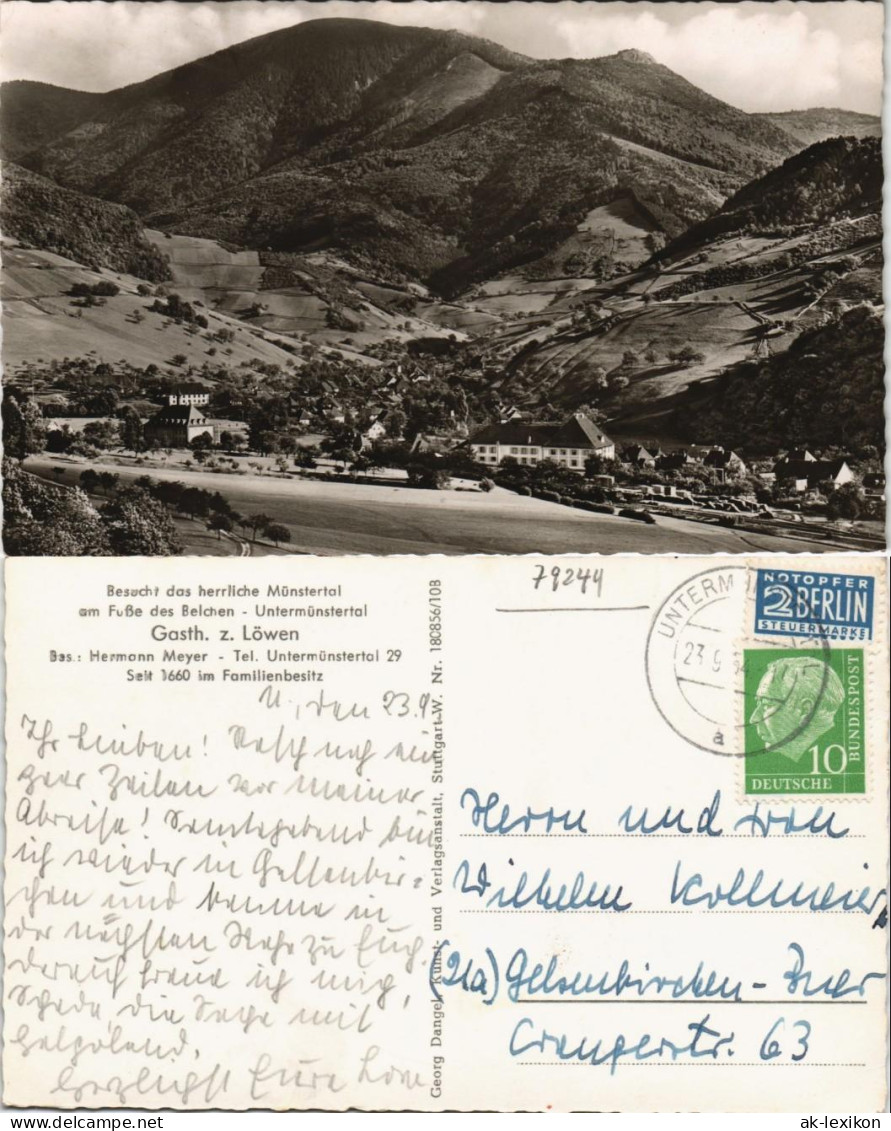 Besucht das herrliche Münstertal
am Fuße des Belchen - Untermünstertal
Gasth. z. Löwen
Bes.: Hermann Meyer - Tel. Untermünstertal 29
Seit 1660 im Familienbesitz
U., den 23.9
Ihr Lieben! Rasch noch ein
paar Zeilen vor meiner
Abreise! Samstagabend bin
ich wieder in Gelsenkir-
chen und komme in
der nächsten Woche zu Euch.
Darauf freue ich mich,
Schade, die Sache mit
Helgoland.
Herzlichst Eure
Georg Dangel, Kunst- und Verlagsanstalt, Stuttgart-W. Nr. 180856/10B
79244
UNTERM
23.9.54
a
NOTOPFER
2 BERLIN
STEUERMARKE
10
DEUTSCHE
BUNDESPOST
Herrn und Frau
Wilhelm Kollmeier,
(21a) Gelsenkirchen-Buer
Crangerstr. 63
www.ak-ansichtskarten.de
ak-lexikon